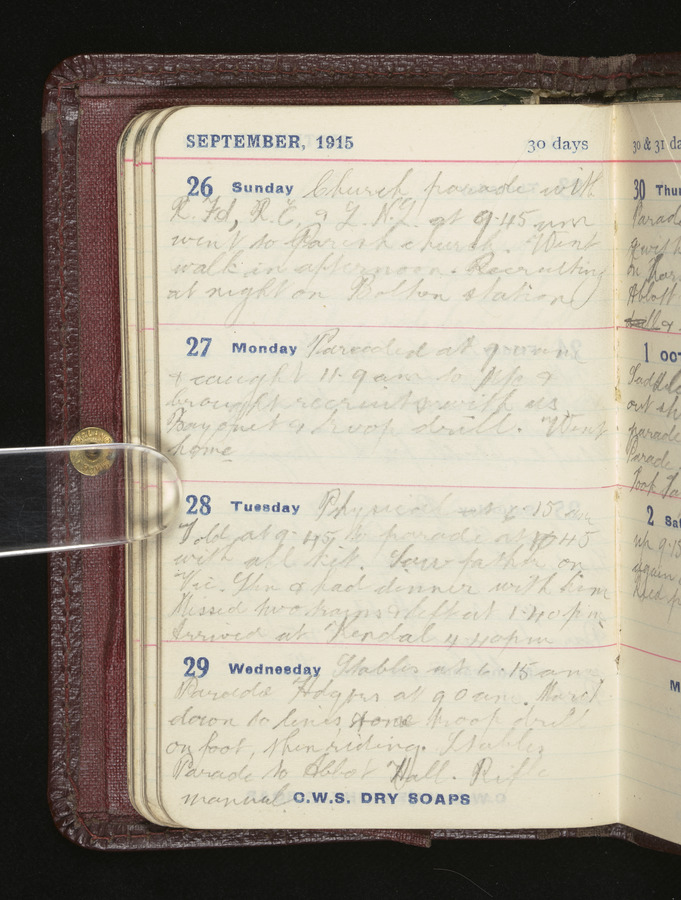 SEPTEMBER, 1915 30 days
26 Sunday Church parade with
R. Fd, R. E, & L. N. L. at 9.45 am
went to Parish church. Went
walk in afternoon. Recruiting
at night on Bolton station
27 Monday Paraded at 9
& caught 11.9 am to &
brought recruits with us
Bayonet & troop drill. Went
home
28 Tuesday Physical at 6.15 am
Told at 9.45 to parade at 10.45
with all kit. Saw father on
Vic. Stn & had dinner with him
Missed two trains & left at 1.40 pm
Arrived at Kendal 4.40 pm
29 Wednesday Stables at 6.15 am
Parade Hdqrs at 9 0 am. March
down to lines some troop drill
on foot, then riding. Stables
Parade to Abbot Hall. Rifle
manual.
C.W.S. DRY SOAPS
30 & 31 da
30 Thu
Parad
& with
on
Abbot
1
Saddle
out
parade
Parade
Took
2 Sat
up 9.15
again